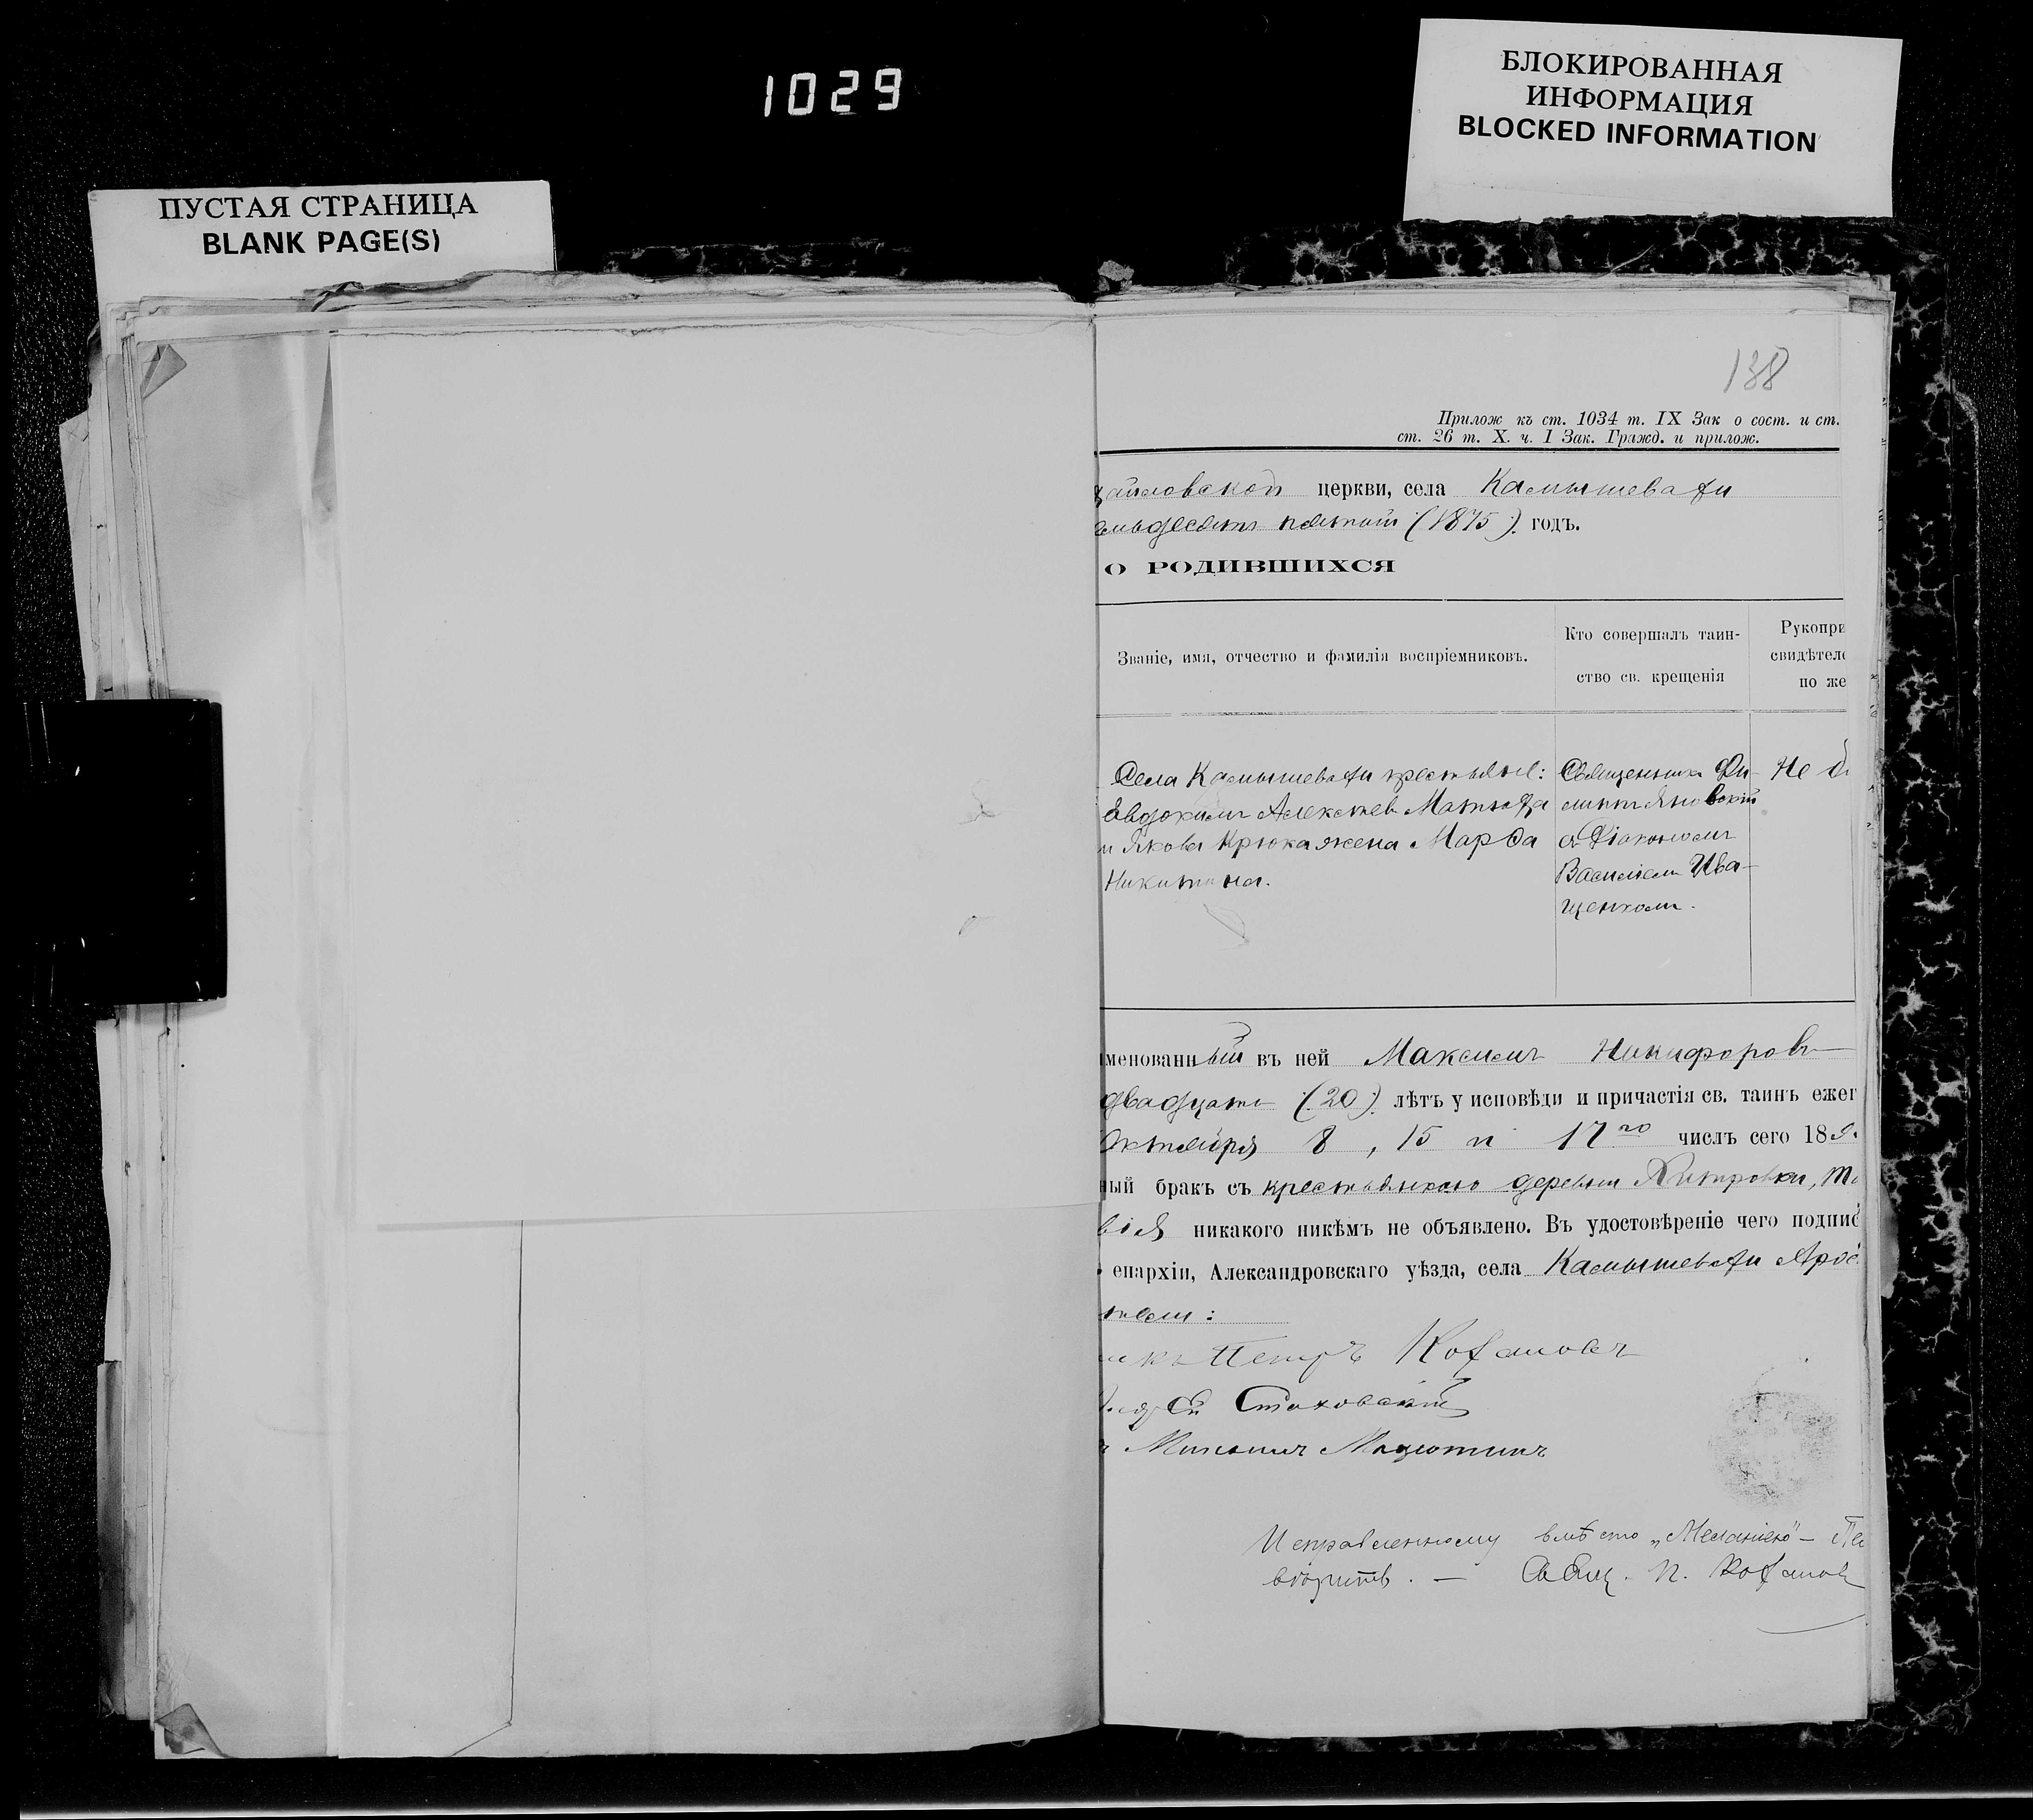 1029
БЛОКИРОВАННАЯ
ИНФОРМАЦИЯ
BLOCKED INFORMATION
ПУСТАЯ СТРАНИЦА
BLANK PAGE(S)
138
Прилож къ ст. 1034 т. IX Зак о сост. и ст.
ст. 26 т. X. ч. I Зак. Гражд. и прилож.
хайловской церкви, села Камышевахи
семьдесятъ пятый (1875). годъ.
О РОДИВШИХСЯ
Званіе, имя, отчество и фамилія воспріемниковъ.
Кто совершалъ таин-
ство св. крещенія
Рукопри
свидѣтел
по же
Села Камышевахи крестьяне:
Евдокимъ Алексѣев
и Якова Крюка жена Марѳа
Никитина.
Священникъ Ди-
митрій Яновскій
съ Діакономъ
Василіемъ Ива-
щенкомъ.
Не б
менованный въ ней Максимъ Никифоровъ
двадцать (20) лѣтъ у исповѣди и причастія св. таинъ ежег
Октября 8, 15 и 17го числъ сего 189
ный бракъ съ крестьянкою деревни
вія никакого никѣмъ не объявлено. Въ удостовѣреніе чего подпис
епархіи, Александровскаго уѣзда, села Камышевахи
телей:
Петръ Кохановъ
Стаховскій
Исправленному вмѣсто „Меланіею" –
вѣрить. – Свящ. П. Коханов